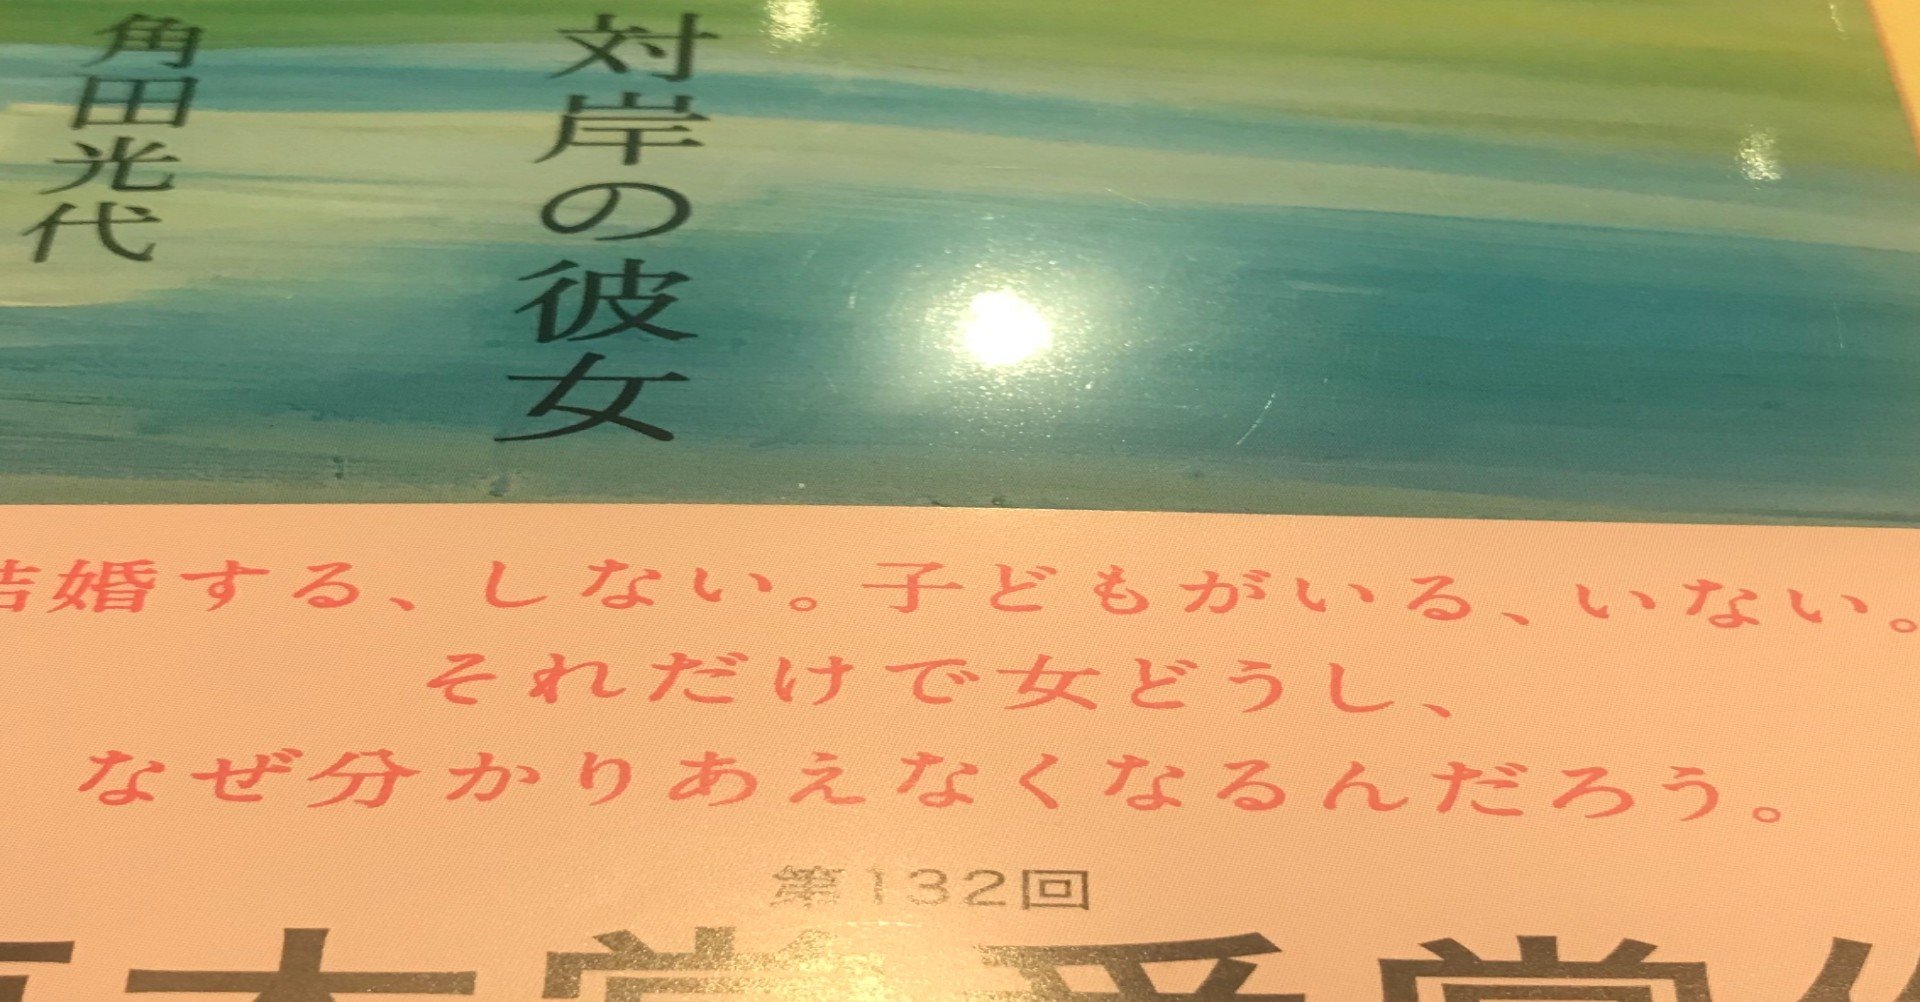 対岸の彼女
角田光代
結婚する、しない。子どもがいる、いない。
それだけで女どうし、
なぜ分かりあえなくなるんだろう。
第132回
直木賞受賞作